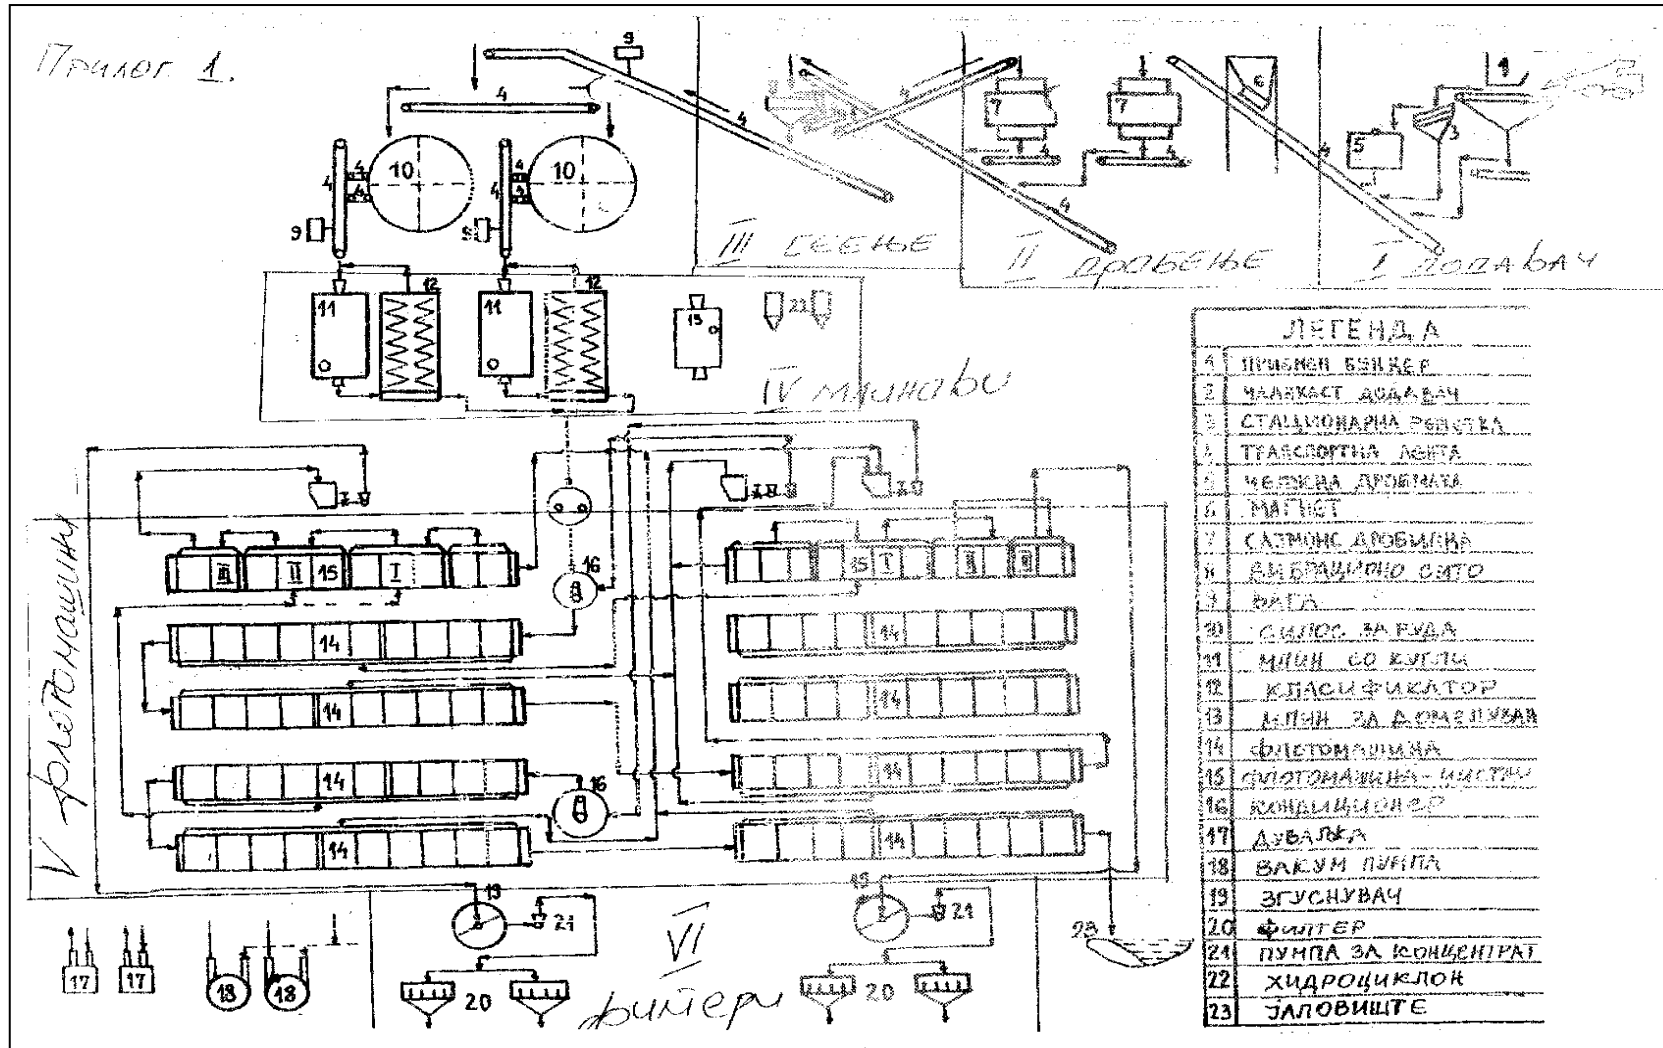 Прилог 1.
9
4
4
4
10
10
4
4
4
4
4
4
9
9
III СЕЕЊЕ
4
4
7
7
4
4
4
II ДРОБЕЊЕ
6
1
3
5
4
I ДОДАВАЧ
11
12
11
12
13
22
IV млинови
V флотомашини
III
II
15
I
16
15
I
II
14
14
14
14
14
16
14
14
14
14
19
21
19
21
17
17
18
18
20
20
VI
филтери
23
ЛЕГЕНДА
1 ПРИЕМЕН БУНКЕР
2 ЧЛАНКАСТ ДОДАВАЧ
3 СТАЦИОНАРНА РЕШЕТКА
4 ТРАНСПОРТНА ЛЕНТА
5 ЧЕЛУСНА ДРОБИЛКА
6 МАГНЕТ
7 САЈМОНС ДРОБИЛКА
8 ВИБРАЦИОНО СИТО
9 ВАГА
10 СИЛОС ЗА РУДА
11 МЛИН СО КУГЛИ
12 КЛАСИФИКАТОР
13 МЛИН ЗА ДОМЕЛУВАЊ
14 ФЛОТОМАШИНА
15 ФЛОТОМАШИНА-ЧИСТАЧ
16 КОНДИЦИОНЕР
17 ДУВАЛКА
18 ВАКУМ ПУМПА
19 ЗГУСНУВАЧ
20 ФИЛТЕР
21 ПУМПА ЗА КОНЦЕНТРАТ
22 ХИДРОЦИКЛОН
23 ЈАЛОВИШТЕ